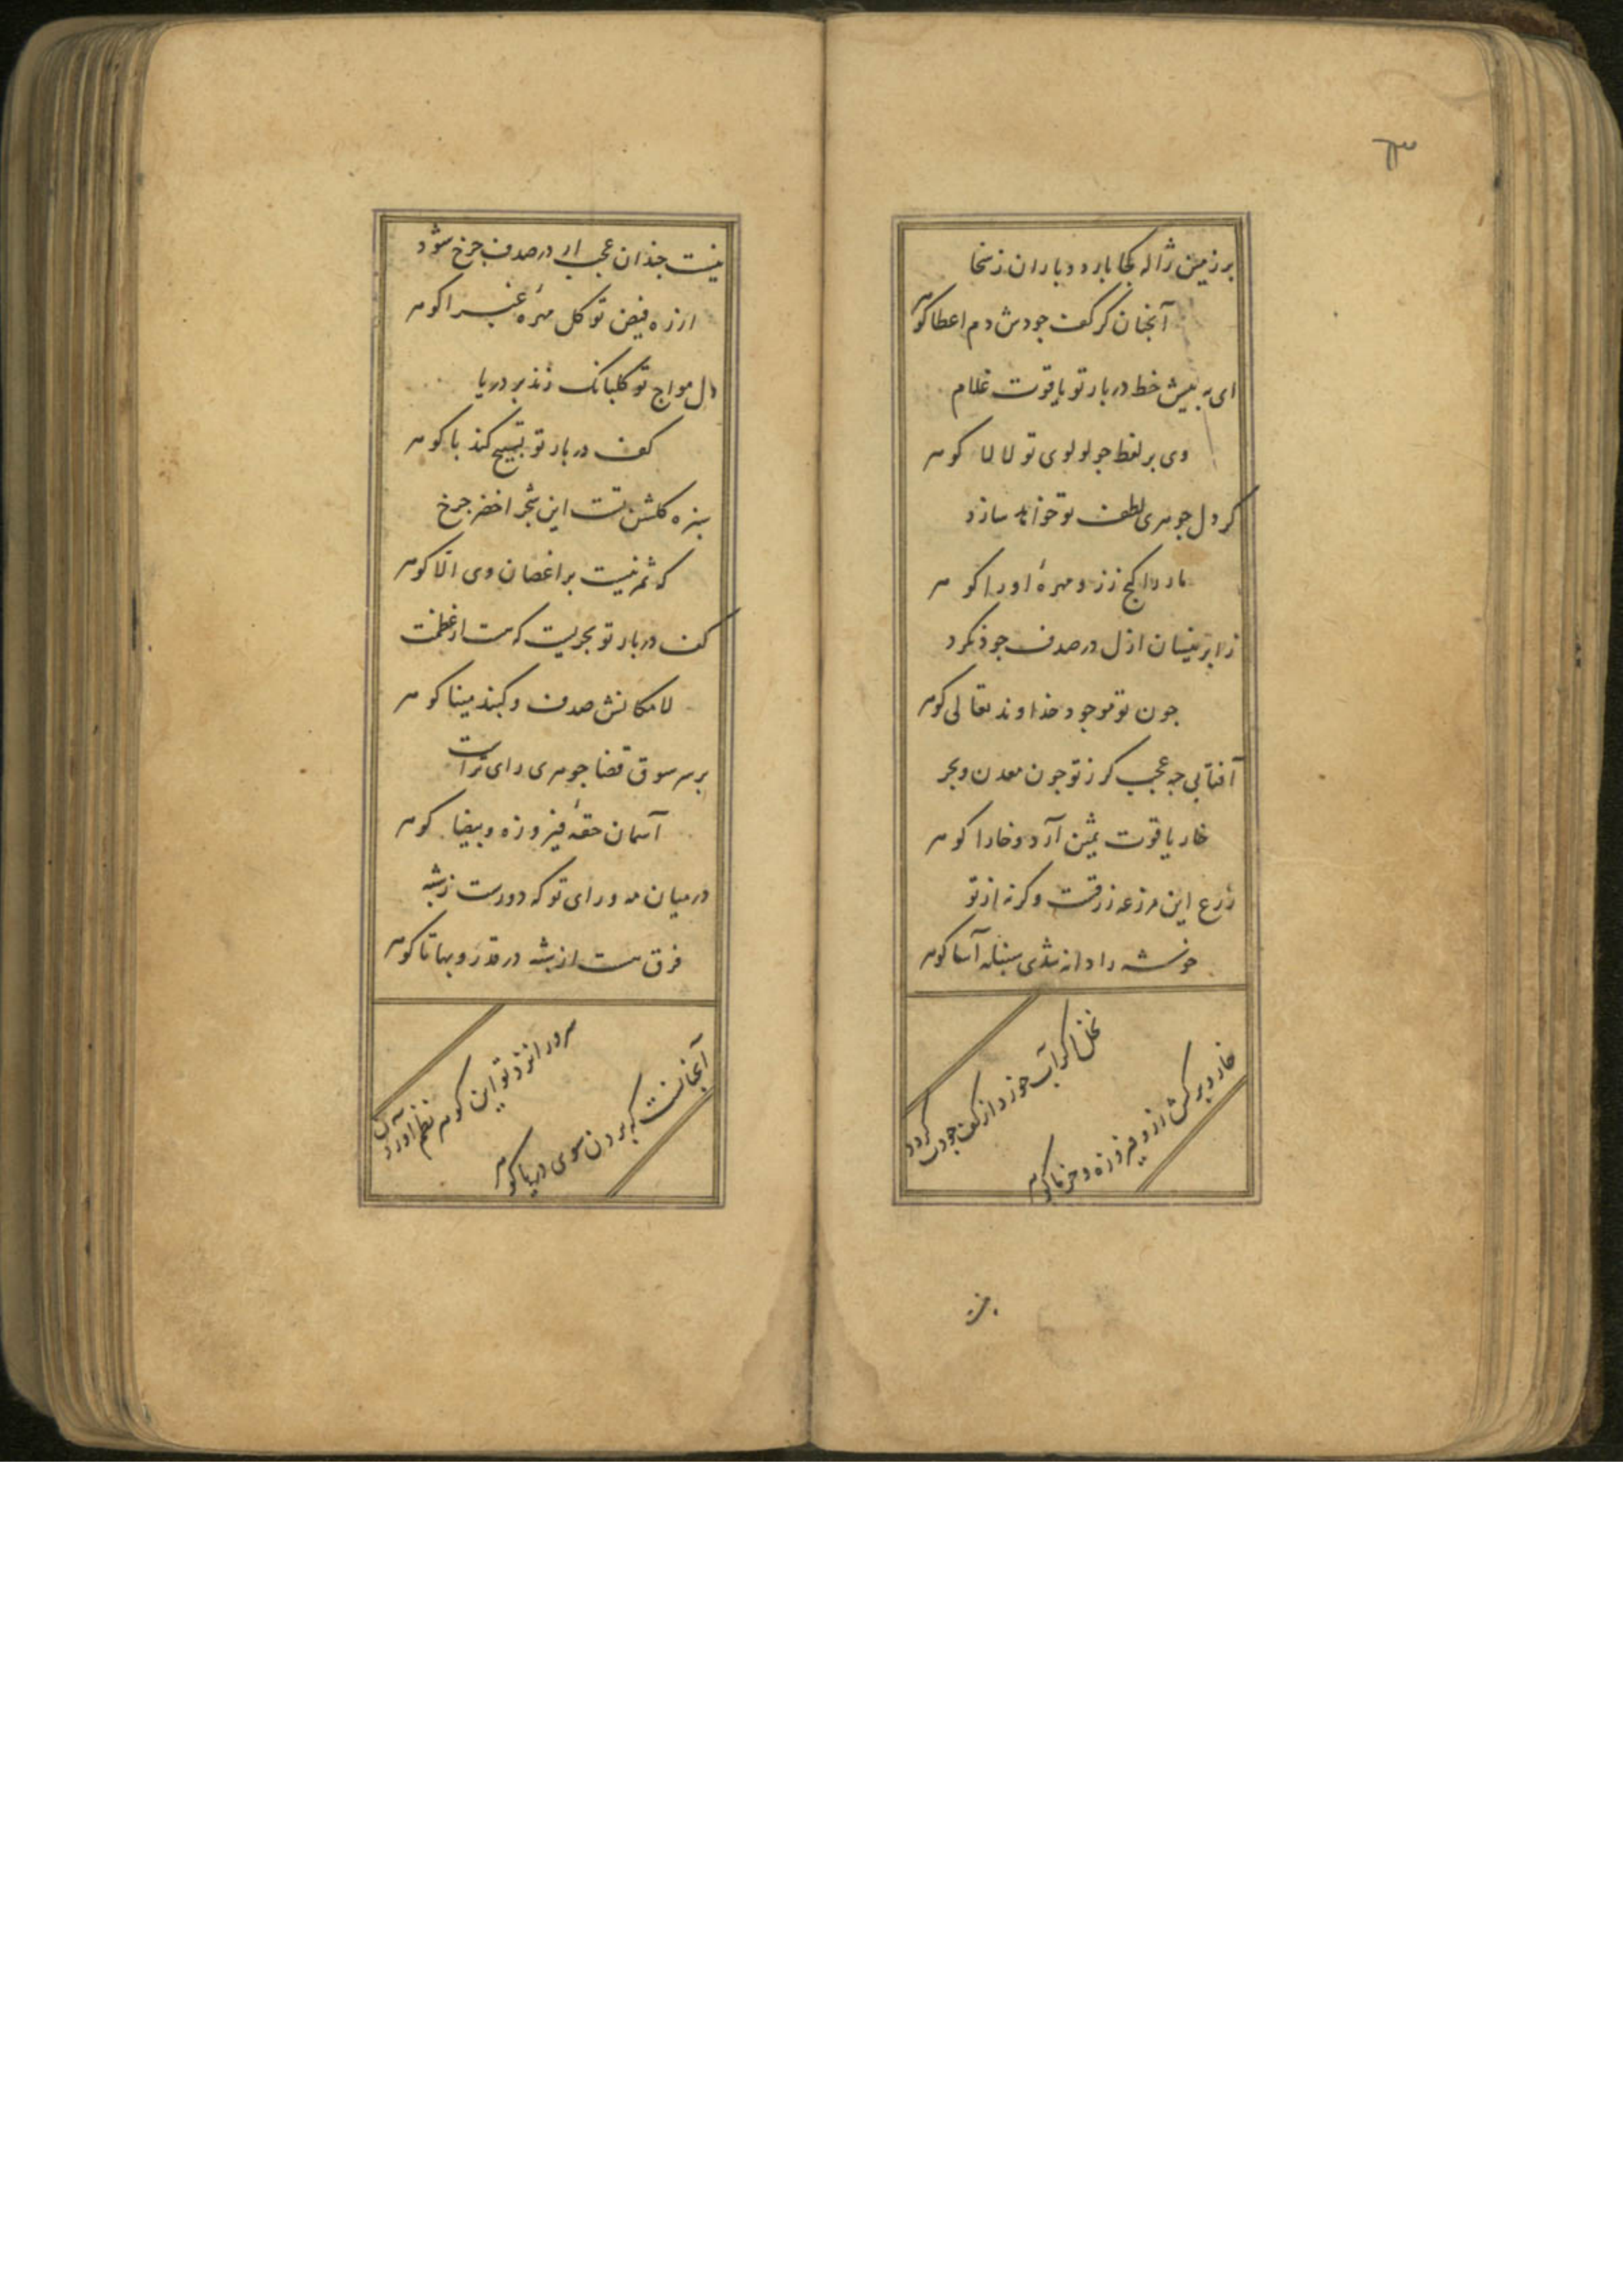 ۳۰
بر زمین ژاله کجا بارد و باران ز سخا
آنجنان کز کف جودش دم اعطا کوهر
ای به بیش خط دربار تو یاقوت غلام
وی بر لفظ جو لولوی تو لالا کوهر
کر دل جوهری لطف تو خواهد سازد
مار را کج ززر و مهرهٔ او را کوهر
ز ابر نیسان ازل در صدف جوذ نکرد
جون تو موجود خذاوند تعالی کوهر
آفتابی جه عجب کر ز تو جون معدن و بحر
خار یاقوت ثمین آرد و خارا کوهر
زرع این مزرعه زرقست وکرنه از تو
خوشه را دانه شدی سنبله آسا کوهر
نخل اکر آب خورد از کف جودت کردد
خار و برکش زر و فیروزه و خرما کوهر
نیست
نیست جندان عجب ار در صدف جرخ شود
از ره فیض تو کل مهرهٔ غبرا کوهر
دل مواج تو کلبانک زند بر دریا
کف دربار تو تسبیح کند با کوهر
سبزه کلشن تست این شجر اخضر جرخ
که ثمر نیست بر اغصان وی الا کوهر
کف دربار تو بحریست که هست از عظمت
لامکانش صدف و کنبذ مینا کوهر
بر سر سوق قضا جوهری رای تراست
آسمان حقهٔ فیروزه و بیضا کوهر
در میان مه و رای تو که دورست ز شبه
فرق هست از شبه در قدر و بها تا کوهر
سرورا نزد تو این کوهر نظم آوردن
آنجانست که بردن سوی دریا کوهر